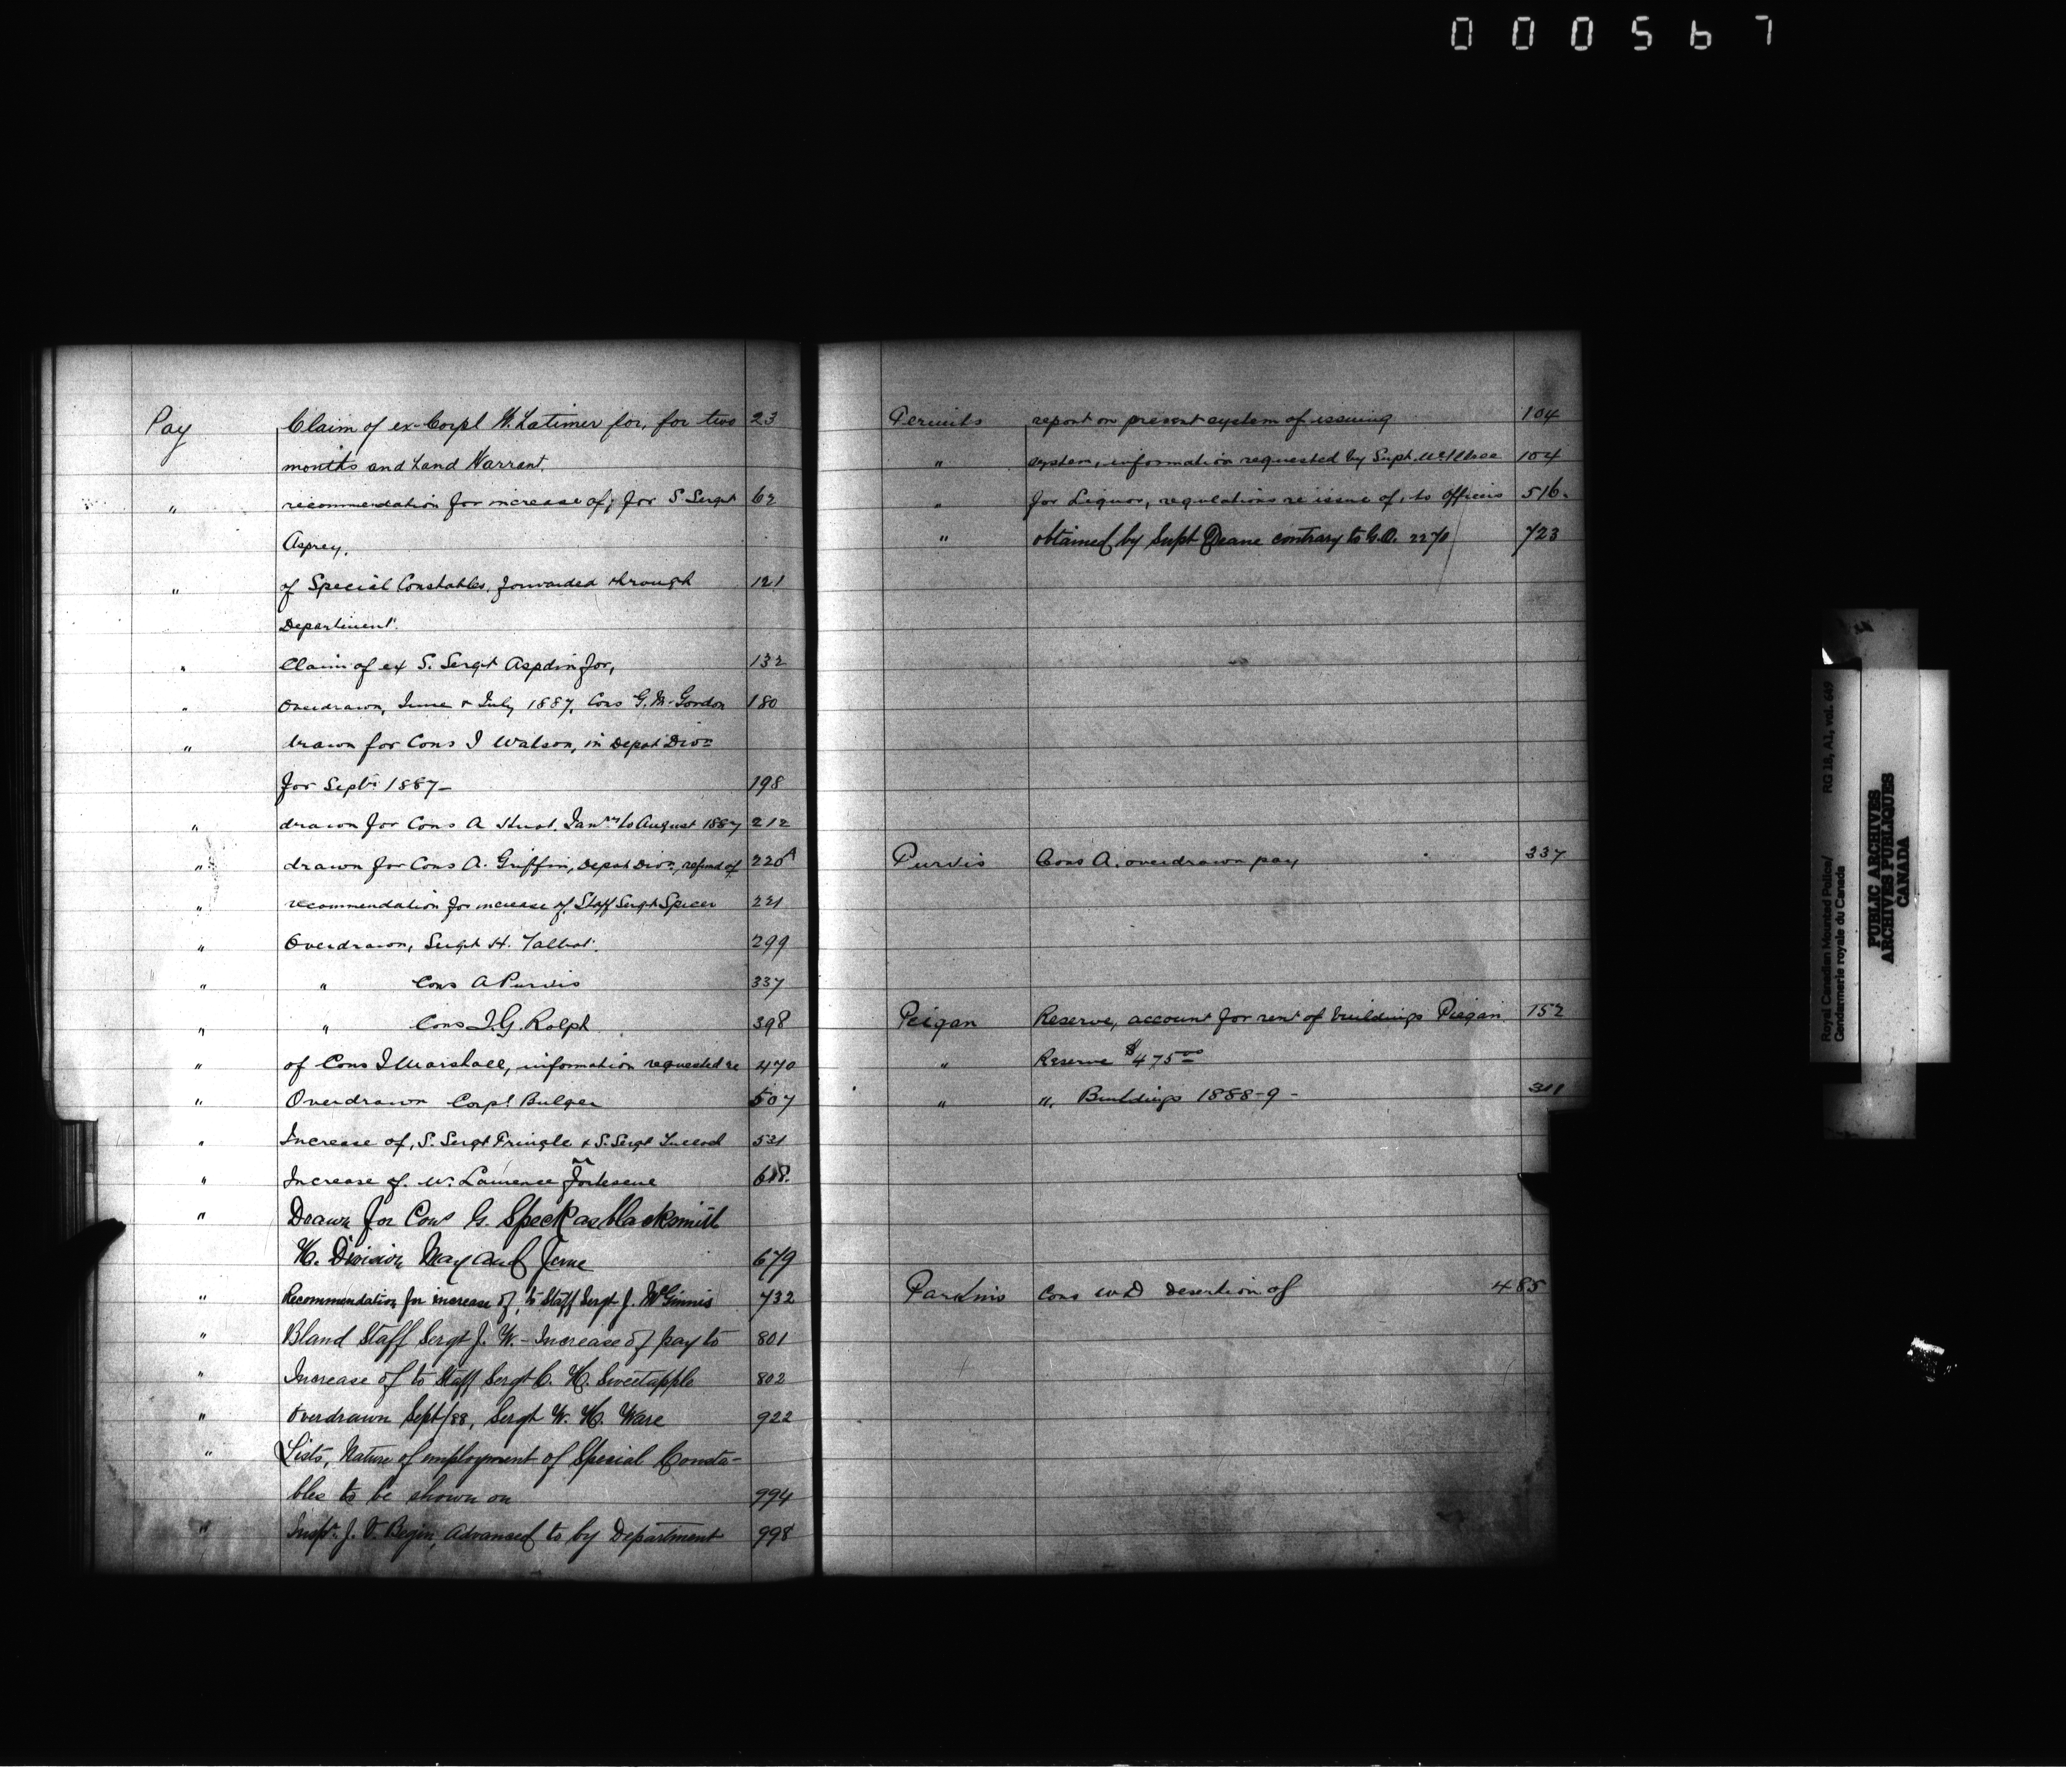 000567
Pay Claim of ex-Corpl W. Latimer for, for two 23
months and Land Warrant.
" recommendation for increase of, for S Sergt 62
Asprey.
" of Special Constables, forwarded through 121
Department.
" Claim of ex S. Sergt Aspdin for, 132
" Overdrawn, June & July 1887. Cons G. M. Gordon 180
" drawn for Cons J Watson, in Depot Divn
for Septr 1887- 198
" drawn for Cons A. Janry to August 1887 212
" drawn for Cons A. Griffin, Depot Divn, refund of 220A
" recommendation for increase of, Staff Sergt Spicer 221
" Overdrawn, Sergt H. Talbot. 299
" " Cons A Purvis 337
" " Cons J.G. Rolph 398
" of Cons J Marshall, information requested re 470
" Overdrawn Corpl Bulger 507
" Increase of, S. Sergt Pringle & S. Sergt 531
" Increase of. W. Laurence Fortescue 618.
" Drawn for Cons G. Speck as blacksmith
H. Division May and June 679
" Recommendation for increase of, to Staff Sergt J. McGinnis 732
" Bland Staff Sergt J. W. - Increase of pay to 801
" Increase of to Staff Sergt C. H. Sweetapple 802
" Overdrawn Sept/88, Sergt W. H. Ware 922
" Lists, Nature of employment of Special Consta-
bles to be shown on 994
" Inspr. J. V. Begin, Advanced to by Department 998
Permits report on present system of issuing 104
" system, information requested by Supt. McIllree 104
" for Liquor, regulations re issue of, to Officers 516.
" obtained by Supt Deane contrary to G.O. 2270 723
Purvis Cons A. overdrawn pay 337
Peigan Reserve, account for rent of buildings Piegan 152
" Reserve $475.00
" ". Buildings 1888-9 - 311
Parkins Cons W D desertion of 485
Royal Canadian Mounted Police/ RG 18, A1, vol. 649
Gendarmerie royale du Canada
PUBLIC ARCHIVES
ARCHIVES PUBLIQUES
CANADA